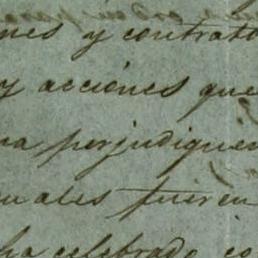 nes y contrato
y acciones que
na perjudiquen
uales fueren
ha celebrado co